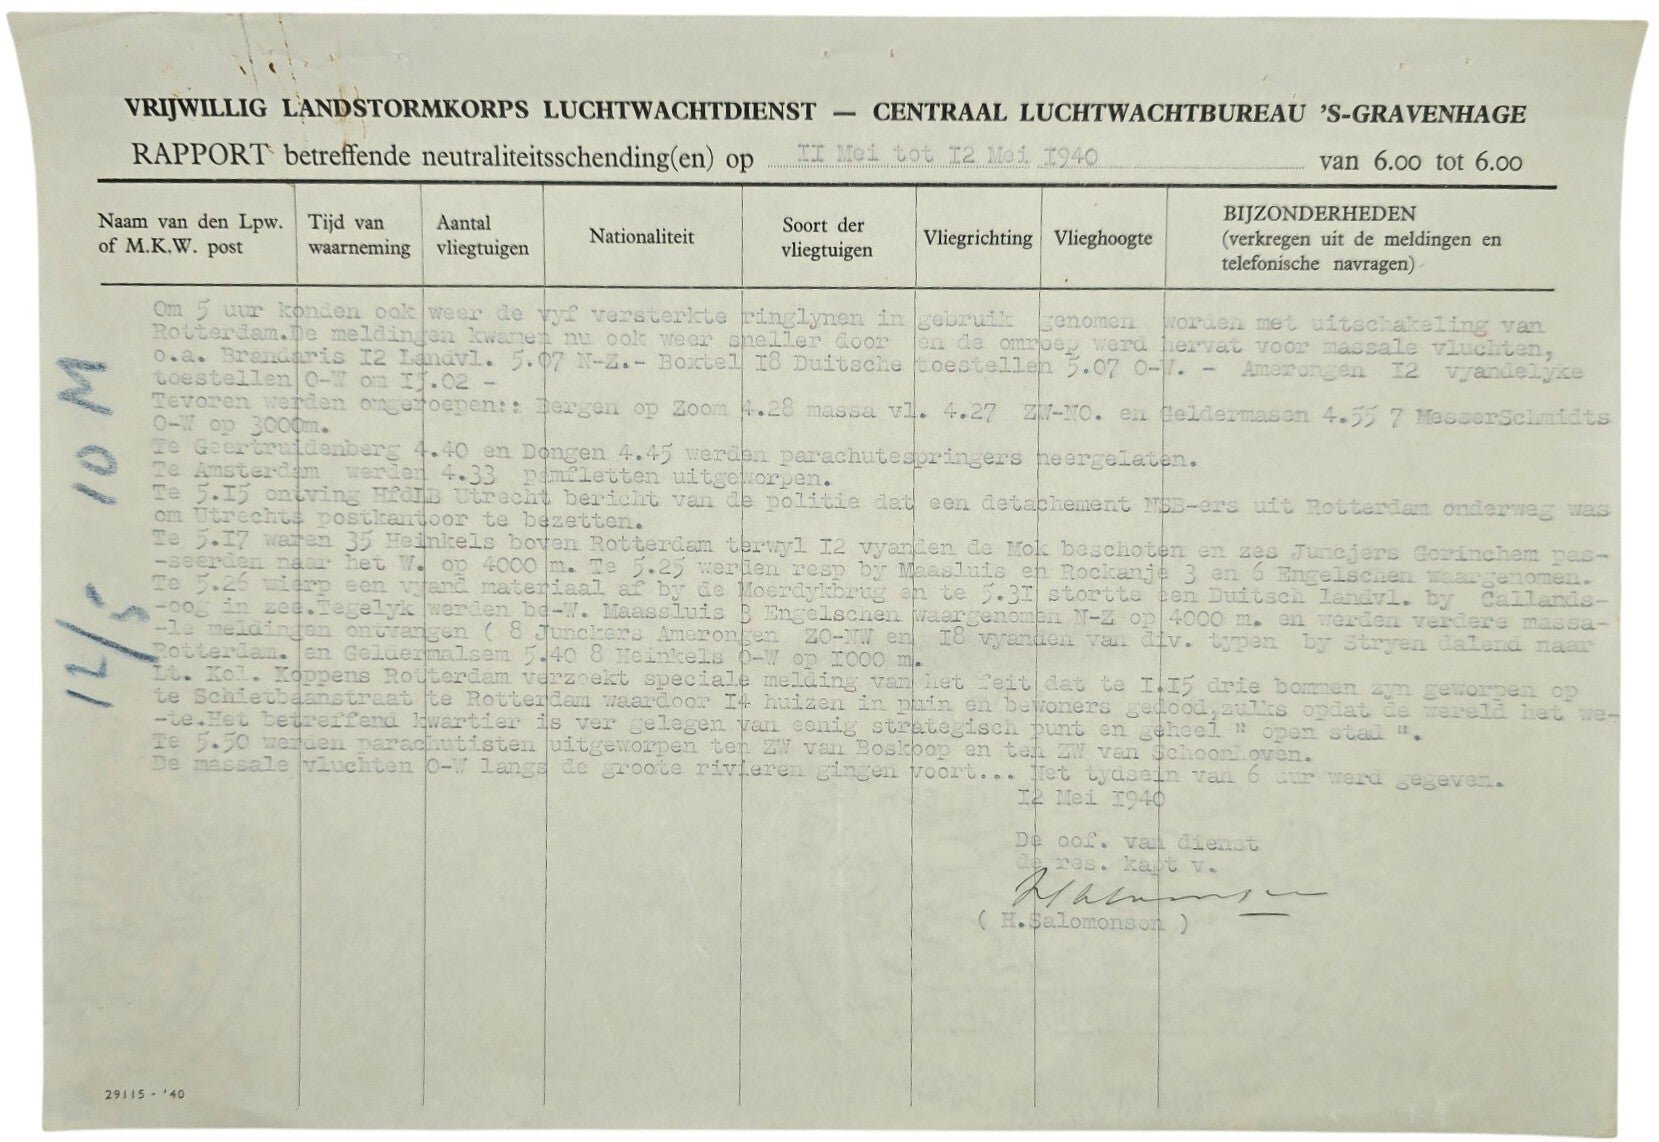 VRIJWILLIG LANDSTORMKORPS LUCHTWACHTDIENST — CENTRAAL LUCHTWACHTBUREAU 'S-GRAVENHAGE
RAPPORT betreffende neutraliteitsschending(en) op II Mei tot I2 Mei I940 van 6.00 tot 6.00
Naam van den Lpw. of M.K.W. post
Tijd van waarneming
Aantal vliegtuigen
Nationaliteit
Soort der vliegtuigen
Vliegrichting
Vlieghoogte
BIJZONDERHEDEN
(verkregen uit de meldingen en
telefonische navragen)
Om 5 uur konden ook weer de vyf versterkte ringlynen in gebruik genomen worden met uitschakeling van
Rotterdam.De meldingen kwamen nu ook weer sneller door en de omroep werd hervat voor massale vluchten,
o.a. Brandaris I2 Landvl. 5.07 N-Z.- Boxtel I8 Duitsche toestellen 5.07 O-W. - Amerongen I2 vyandelyke
toestellen O-W om I5.02 -
Tevoren werden omgeroepen:: Bergen op Zoom 4.28 massa vl. 4.27 ZW-NO. en Geldermasen 4.55 7 MesserSchmidts
O-W op 3000m.
Te Geertruidenberg 4.40 en Dongen 4.45 werden parachutespringers neergelaten.
Te Amsterdam werden 4.33 pamfletten uitgeworpen.
Te 5.I5 ontving HfdLB Utrecht bericht van de politie dat een detachement NSB-ers uit Rotterdam onderweg was
om Utrechts postkantoor te bezetten.
Te 5.I7 waren 35 Heinkels boven Rotterdam terwyl I2 vyanden de Mok beschoten en zes Juncjers Gorinchem pas-
-seerden naar het W. op 4000 m. Te 5.25 werden resp by Maasluis en Rockanje 3 en 6 Engelschen waargenomen.
Te 5.26 wierp een vyand materiaal af by de Moerdykbrug en te 5.3I stortte een Duitsch landvl. by Callands-
-oog in zee.Tegelyk werden be-W. Maassluis 3 Engelschen waargenomen N-Z op 4000 m. en werden verdere massa-
-le meldingen ontvangen ( 8 Junckers Amerongen ZO-NW en I8 vyanden van div. typen by Stryen dalend naar
Rotterdam. en Geldermalsem 5.40 8 Heinkels O-W op I000 m.
Lt. Kol. Koppens Rotterdam verzoekt speciale melding van het feit dat te I.I5 drie bommen zyn geworpen op
te Schietbaanstraat te Rotterdam waardoor I4 huizen in puin en bewoners gedood,zulks opdat de wereld het we-
-te.Het betreffend kwartier is ver gelegen van eenig strategisch punt en geheel " open stad ".
Te 5.50 werden parachutisten uitgeworpen ten ZW van Boskoop en ten ZW van Schoonhoven.
De massale vluchten O-W langs de groote rivieren gingen voort... Het tydsein van 6 uur werd gegeven.
I2 Mei I940
De oof. van dienst
de res. kapt v.
( H.Salomonson )
12/5 10 M
29115 - '40